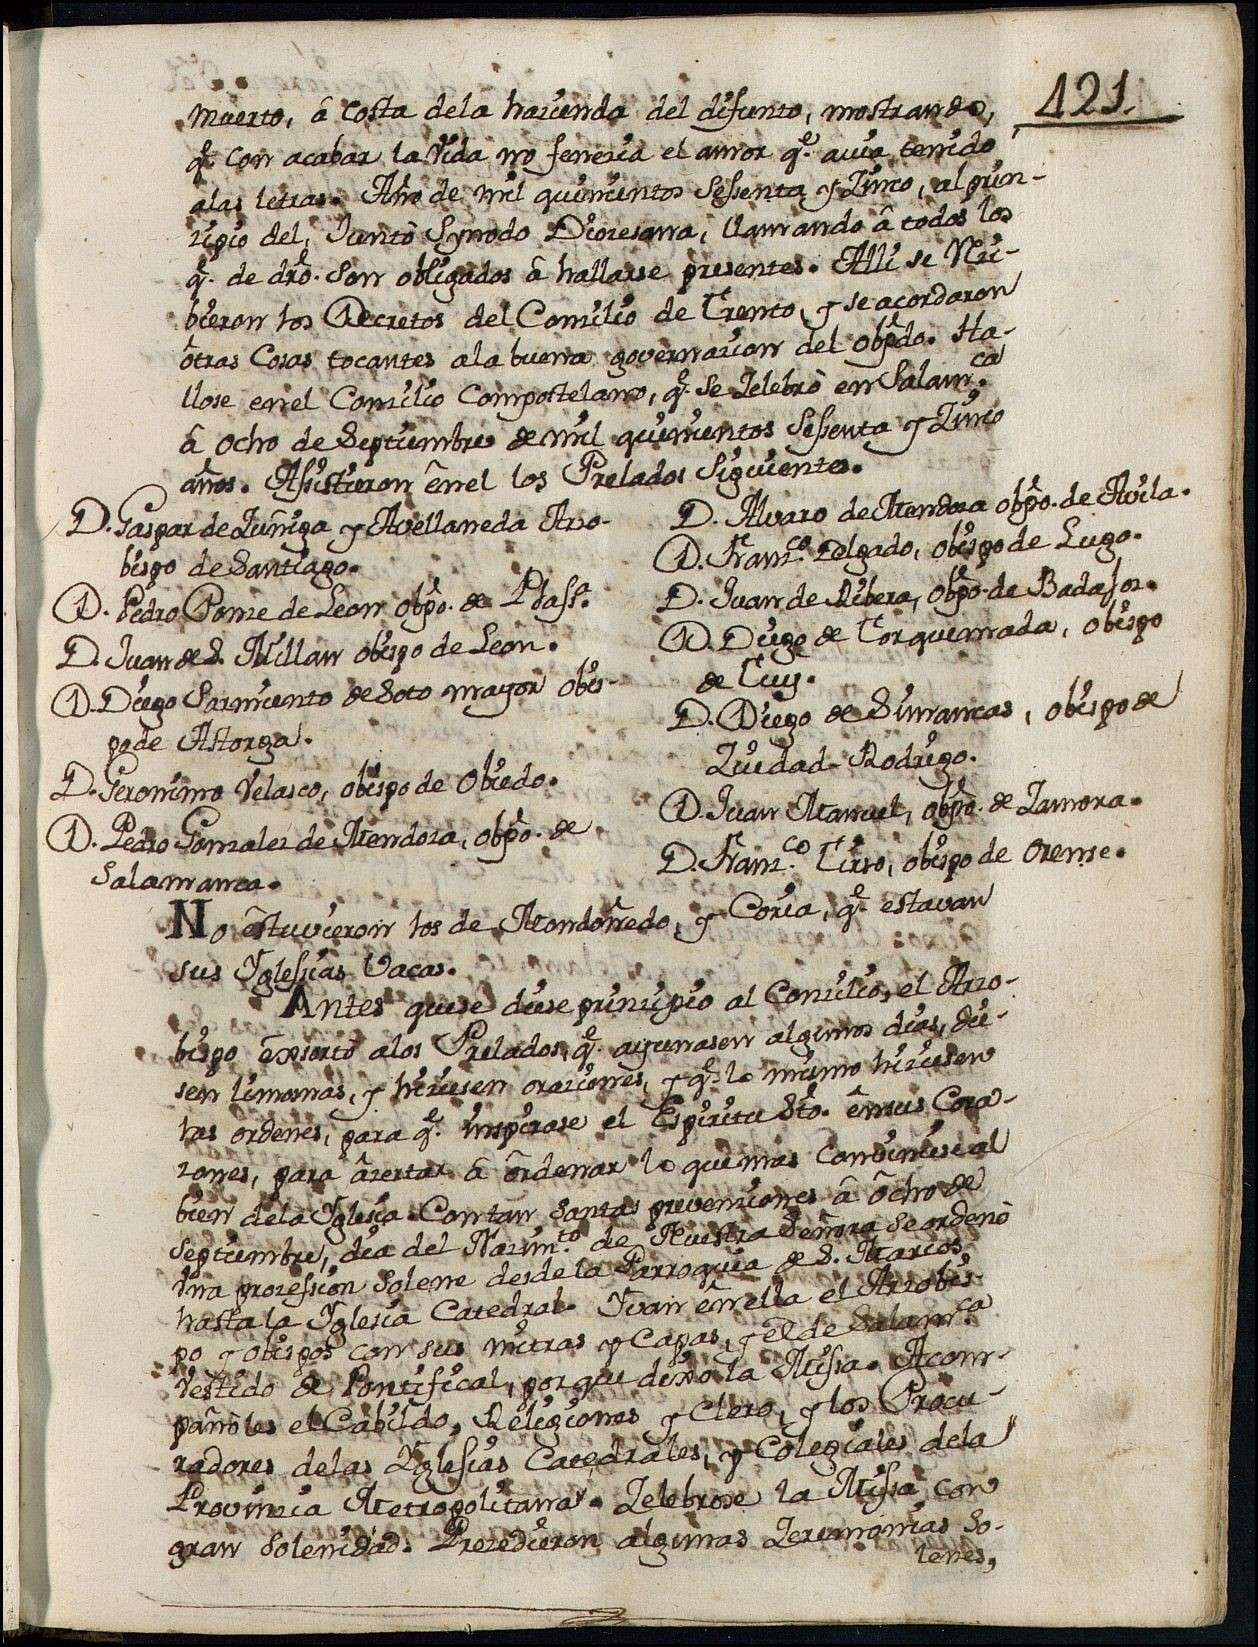 121.
muerto, â costa dela hazienda del difunto, mostrando,
q.e con acabar la Vida no feneria el amor q.e auia tenido
alas letras. Año de mil quinientos Sesenta y Zinco, al prin-
zipio del, Juntò Synodo Diozesana, llamando â todos los
q.e de dro. Son obligados â hallarse presentes. Alli se Rezi-
bieron los Decretos del Conzilio de Trento, y se acordaron
ôtras Cosas tocantes ala buena governazion del obpdo. Ha-
llose enel Conzilio Compostelano, q.e Se Zelebrò en Salam.ca
â ocho de Septiembre de mil quinientos Sesenta y Zinco
años. Asistieron ênel los Prelados Siguientes.
D. Gaspar de Zuñiga y Avellaneda Arzo-
bispo de Santiago.
D. Pedro Ponze de Leon obpo. de Plass.a
D. Juan de S. Millan obispo de Leon.
D. Diego Sarmiento de Soto mayor obis-
po de Astorga.
D. Geronimo Velasco, obispo de Obiedo.
D. Pedro Gonzalez de Mendoza, obpo. de
Salamanca.
D. Alvaro de Mendoza obpo. de Avila.
D. Franz.co Delgado, obispo de Lugo.
D. Juan de Ribera, obpo. de Badajoz.
D. Diego de Torquemada, obispo
de Tuy.
D. Diego de Simancas, obispo de
Ziudad-Rodrigo.
D. Juan Manuel, obpo. de Zamora.
D. Franz.co Tirso, obispo de Orense.
No êstuvieron los de Mondoñedo, y Coria, q.e estavan
sus Yglesias Vacas.
Antes quese diese prinzipio al Conzilio, el Arzo-
bispo êxsortò alos Prelados, q.e ayunasen algunos dias, die-
sen limosnas, y hiziesen oraziones, y q.e lo mismo hiziesen
las ordenes, para q.e inspirase el Espiritu Sto. ênsus Cora-
zones, para âzertar â ôrdenar lo quemas Conviniese al
bien dela Yglesia. Contan Santas prevenziones â ôcho de
Septiembre, dia del Nazim.to de Nuestra Señora Se ordenò
Una prozession Solene desde la Parroquia de S. Marcos,
hasta la Yglesia Catedral. Yvan ênella el Arzobis-
po y obispos con sus mitras y Capas, y êl de Salam.ca
Vestido de Pontifical, porque dixo la Missa. Acom-
pañòles el Cabildo, Religiones y Clero, y los Procu-
radores delas Yglesias Catedrales, y Colegiales dela
Provinzia Metropolitana. Zelebrose la Missa con
gran Solenidad. Prezedieron algunas Zeremonias So-
lenes,